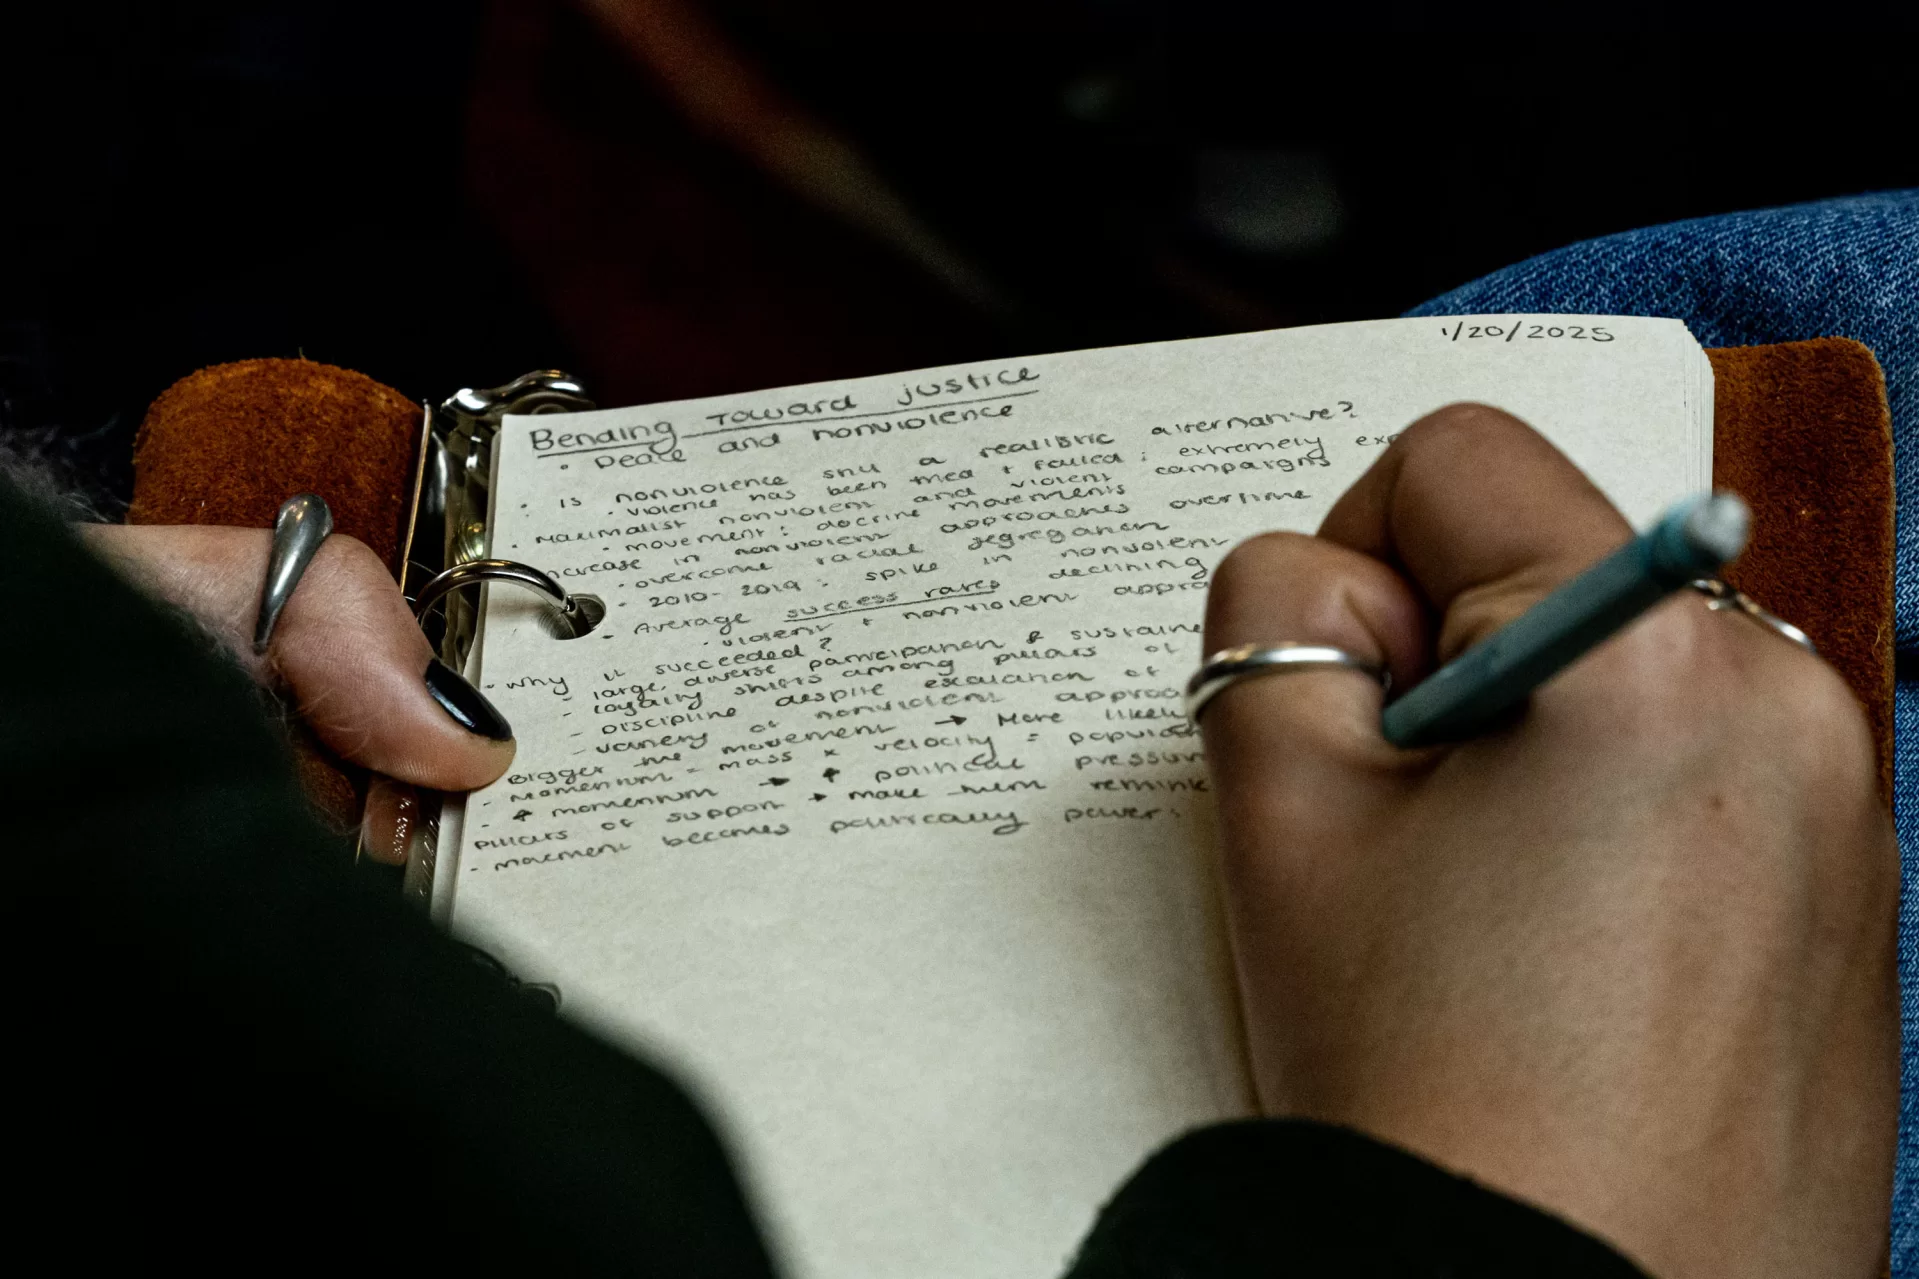 1/20/2025
Bending Toward justice
• peace and nonviolence
• Is nonviolence still a realistic alternative?
• violence has been tried + failed ; extremely
• Maximalist nonviolent and violent campaigns
• movement : doctrine movements
increase in nonviolent approaches overtime
• overcome racial segregation
• 2010-2019 : spike in nonviolent
• Average success rates declining
• violent + nonviolent
• Why it succeeded?
- large, diverse participation &
- loyalty shifts among pillars of
- Discipline despite escalation of
- variety of nonviolent
Bigger the movement → More likely
- Momentum = mass x velocity =
- ↑ momentum → ↑ political
pillars of support → make them
- movement becomes politically